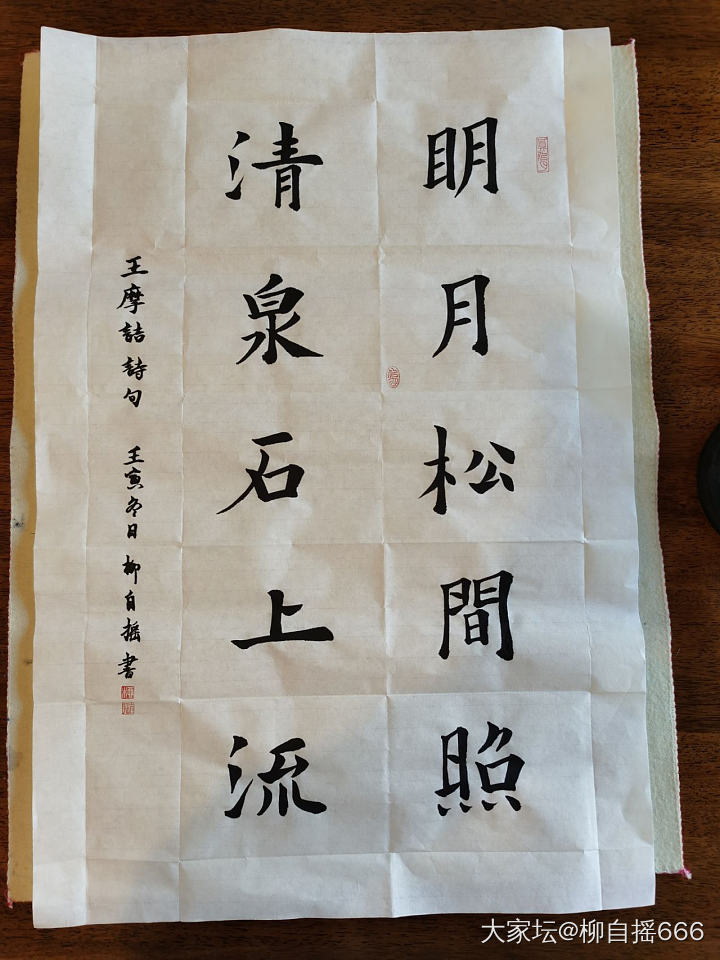 明月松間照
清泉石上流
王摩詰詩句 壬寅冬日 柳自摇書
大家坛@柳自摇666